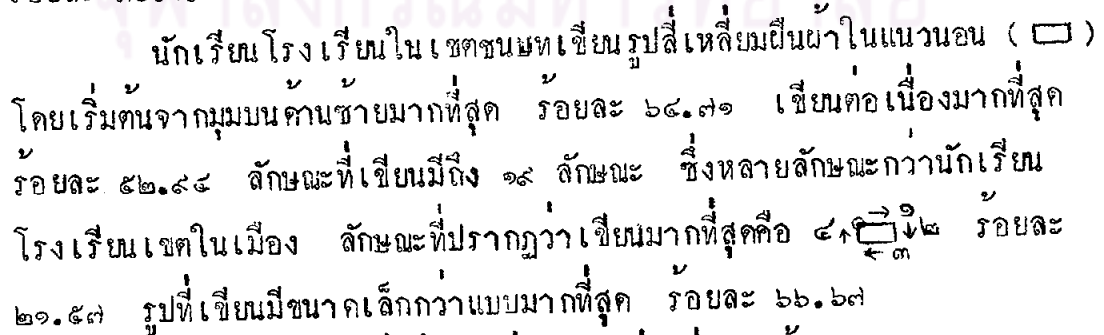 นักเรียนโรงเรียนในเขตชนบทเขียนรูปสี่เหลี่ยมผืนผ้าในแนวนอน ( ▭ )
โดยเริ่มต้นจากมุมบนด้านซ้ายมากที่สุด ร้อยละ ๖๔.๗๑ เขียนต่อเนื่องมากที่สุด
ร้อยละ ๕๒.๙๔ ลักษณะที่เขียนมีถึง ๑๙ ลักษณะ ซึ่งหลายลักษณะกว่านักเรียน
โรงเรียนเขตในเมือง ลักษณะที่ปรากฏว่าเขียนมากที่สุดคือ ๔↑▭→๑↓๒ ←๓ ร้อยละ
๒๑.๕๗ รูปที่เขียนมีขนาดเล็กกว่าแบบมากที่สุด ร้อยละ ๖๖.๖๗